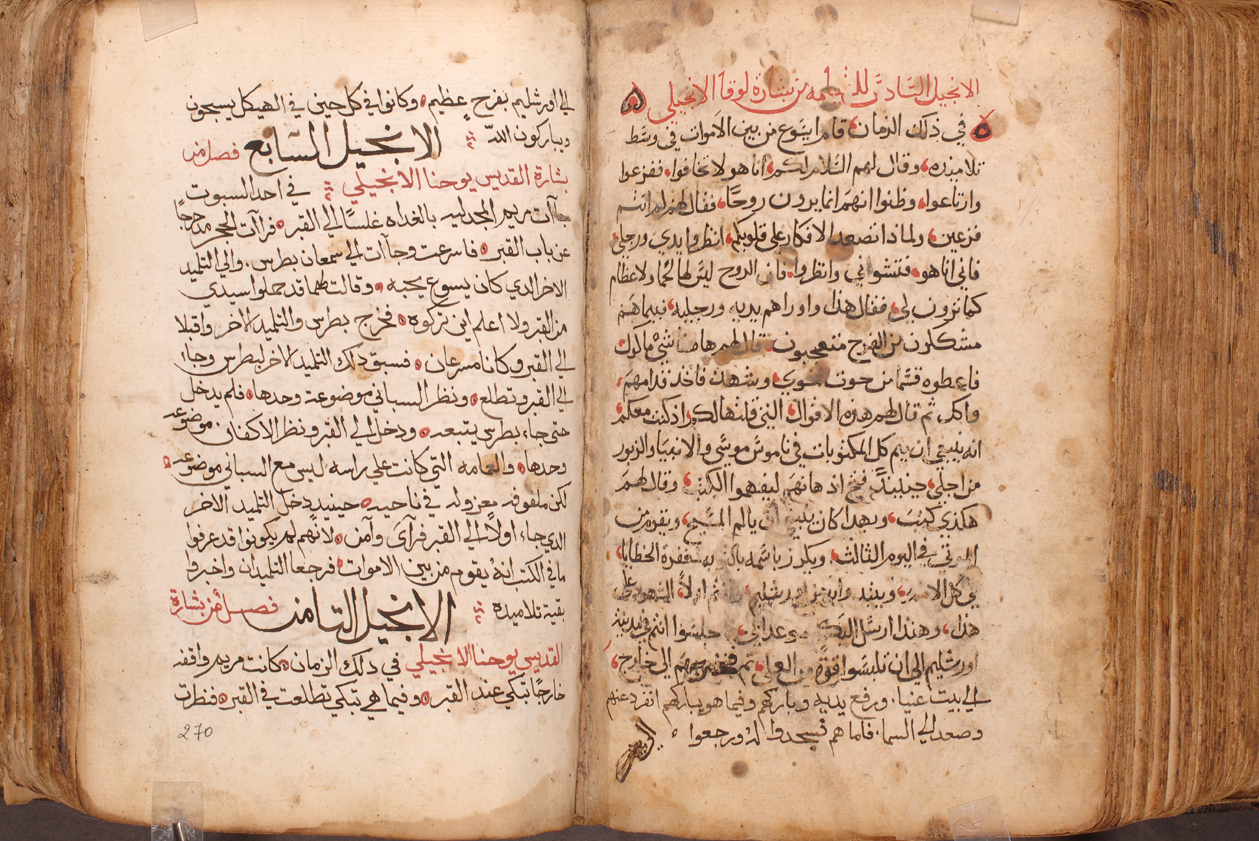 الانجيل السادس للقيامه من بشارة لوقا الانجيلي
في ذلك الزمان قام ايسوع من بين الاموات في وسط
تلاميذه وقال لهم السلام لكم انا هو لا تخافوا ففزعوا
وارتاعوا وظنوا انهم انما يرون روحًا فقال لهم لم انتم
فزعين ولماذا تصعد الافكار على قلوبكم انظروا يدي ورجلي
فاني انا هو فتشوني وانظروا فان الروح ليس لها لحما ولا عظام
كما ترون لي فقال هذا واوراهم يديه ورجليه فبيماهم
مشككون من الفرح متعجبون قال لهم هاهنا شي ماكول
فاعطوه قسمًا من حوت مشوي وشهدة فاخذ قدامهم
واكل ثم قال لهم هذه الاقوال التي قلتها لكم اذ كنت معكم
انه ينبغي ان يتم كل المكتوبات في ناموس موسى والانبيا والزبور
من اجلي حينيذٍ فتح اذهانهم ليفهوا الكتب وقال لهم
هكذي كتب وبهذا كان ينبغي ان يالم المسيح ويقوم من
في اليوم الثالث ويكرز باسمه بالتوبه مغفرة الخطايا
في كل الامم ويبتدا اورشليم ثم اولاً الشهود على
هذا وهنذا ارسل اليكم موعد ابي جلسوا انتم في مدينة
اورشليم الى ان تلبسوا قوة من العلى ثم اخرجهم الى خارج
الي بيت عنيا ورفع يديه وباركهم وفيما هو يباركهم انفرد عنهم
وصعد الي السما فاما هم فسجدوا له ورجعوا
الي اورشليم بفرح عظيم وكانوا في كل حين في الهيكل يسبحون
ويباركون الله الانجيل السابع فصل من
بشارة القديس يوحنا الانجيلي في احد السبوت
جاآت مريم المجدليه بالغداه غلسًا الي القبر فرآت الحجر مدحرجاً
عن باب القبر فاسرعت وجاآت الي سمعان بطرس والي التلميد
الاخر الدي كان يسوع يحبه وقالت لهما قد حملوا سيدي
من القبر ولا اعلم اين تركوه فخرج بطرس والتلميد الاخر واقبلا
الي القبر وكانا مسرعان فسبق ذلك التلميد الاخر لبطرس وجاء
الي القبر وتطلع ونظر السباني موضوعة وحدها فلم يدخل
حتى جاء بطرس يتبعه ودخل الي القبر ونظر الاكفان موضوعه
وحدها والعمامه التي كانت علي راسه ليس مع السباني موضوعه
لكن ملفوفه معزوله في ناحيه حينيدٍ دخل التلميد الاخر
الدي جاء اولاً الي القبر فرآى وآمن لانهم لم يكونوا قد عرفوا
ما في الكتب انه يقوم من بين الاموات فرجعا التلميدان واخبروا
بقية تلاميده الانجيل الثامن فصل من بشارة
القديس يوحنا الانجيلي في ذلك الزمان كانت مريم واقفه
خارجًا تبكي عند القبر وفيما هي تبكي تطلعت في القبر فنظرت
270